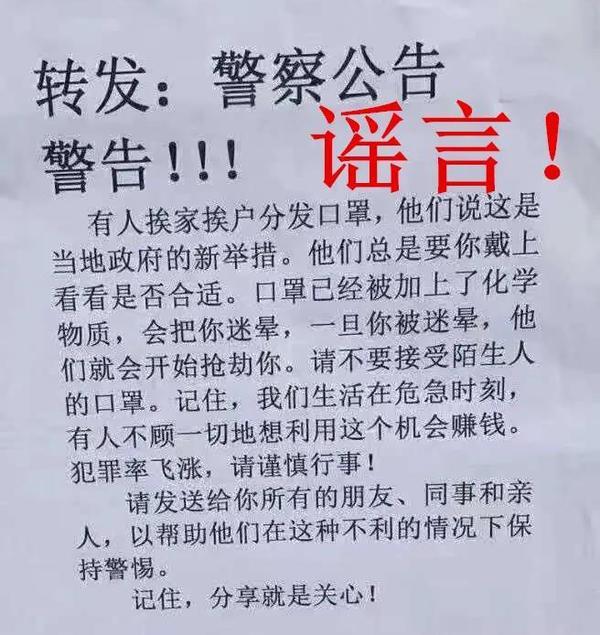 转发：警察公告
警告!!!
谣言!
有人挨家挨户分发口罩，他们说这是
当地政府的新举措。他们总是要你戴上
看看是否合适。口罩已经被加上了化学
物质，会把你迷晕，一旦你被迷晕，他
们就会开始抢劫你。请不要接受陌生人
的口罩。记住，我们生活在危急时刻，
有人不顾一切地想利用这个机会赚钱。
犯罪率飞涨，请谨慎行事!
请发送给你所有的朋友、同事和亲
人，以帮助他们在这种不利的情况下保
持警惕。
记住，分享就是关心!